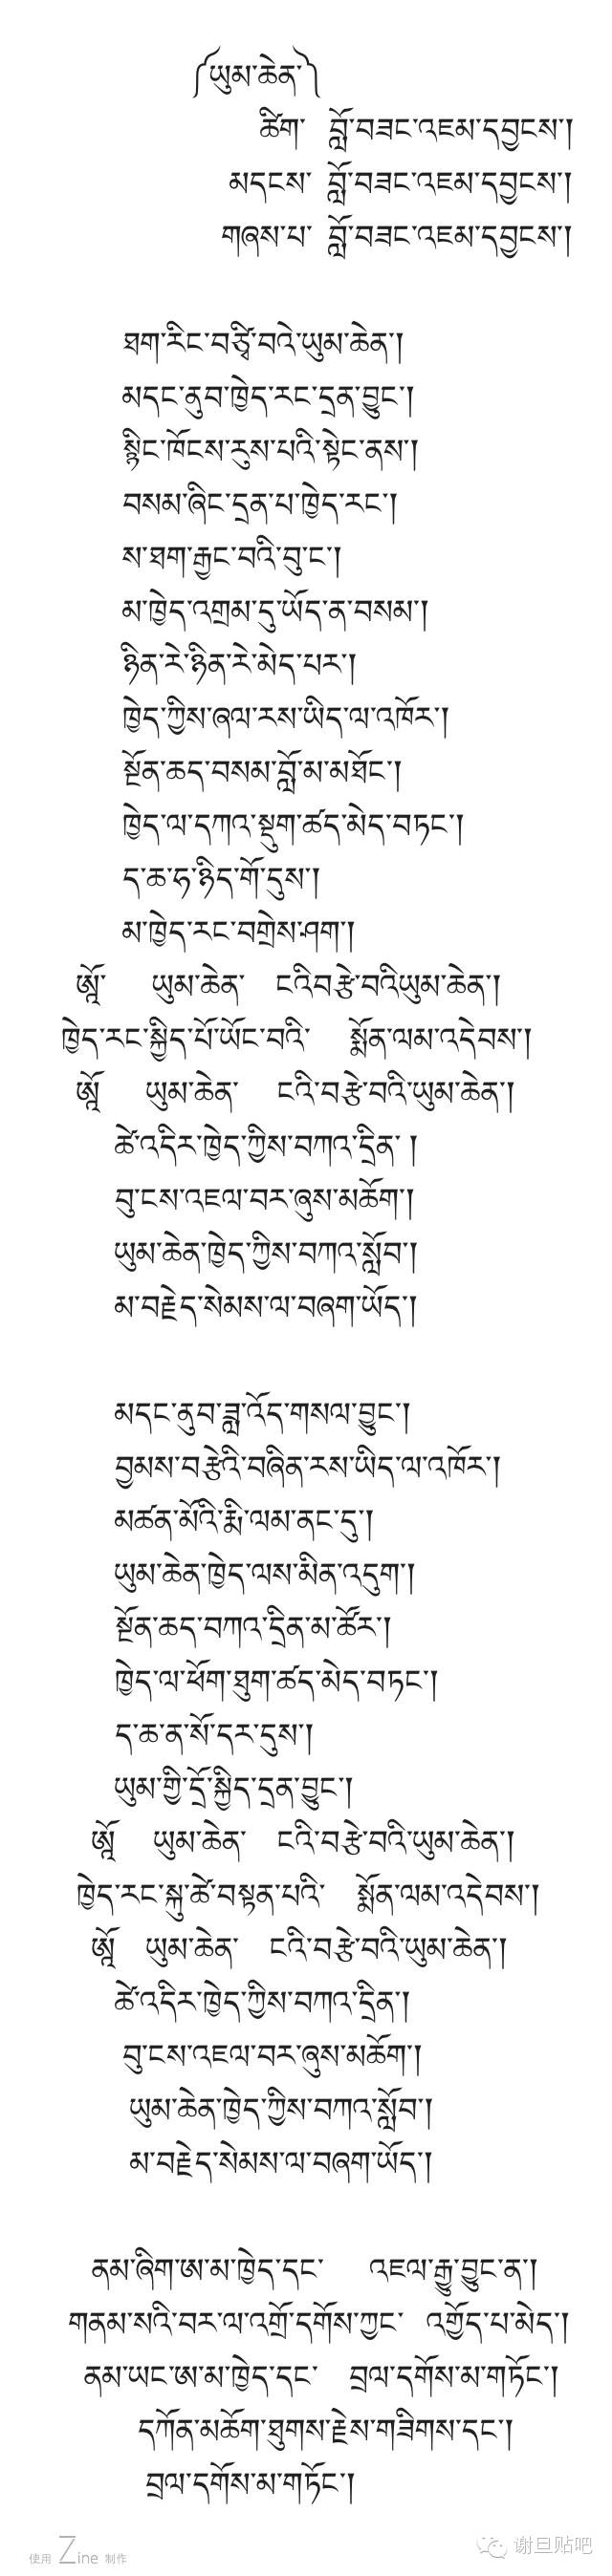 ༼ཡུམ་ཆེན་༽
ཚིག་ བློ་བཟང་འཇམ་དབྱངས་།
མདངས་ བློ་བཟང་འཇམ་དབྱངས་།
གཞས་པ་ བློ་བཟང་འཇམ་དབྱངས་།
ཐག་རིང་བརྩི་བའེ་ཡུམ་ཆེན་།
མདང་ནུབ་ཁྱེད་རང་དྲན་བྱུང་།
སྙིང་ཁོངས་རུས་པའི་སྟེང་ནས་།
བསམ་ཞིང་དྲན་པ་ཁྱེད་རང་།
ས་ཐག་རྒྱང་བའི་བུ་ང་།
མ་ཁྱེད་འགྲམ་དུ་ཡོད་ན་བསམ་།
ཉིན་རེ་ཉིན་རེ་མེད་པར་།
ཁྱེད་ཀྱིས་ཞལ་རས་ཡིད་ལ་འཁོར་།
སྔོན་ཆད་བསམ་བློ་མ་མཐོང་།
ཁྱེད་ལ་དཀའ་སྡུག་ཚད་མེད་བཏང་།
ད་ཆ་ཧ་ཉིད་གོ་དུས་།
མ་ཁྱེད་རང་བགྲེས་ཤག་།
ཨཱོ་ ཡུམ་ཆེན་ ངའིབརྩེ་བའིཡུམ་ཆེན་།
ཁྱེད་རང་སྐྱིད་པོ་ཡོང་བའི་ སྨོན་ལམ་འདེབས་།
ཨཱོ ཡུམ་ཆེན་ ངའི་བརྩེ་བའི་ཡུམ་ཆེན་།
ཚེ་འདིར་ཁྱེད་ཀྱིས་བཀའ་དྲིན་ །
བུ་ངས་འཇལ་བར་ཞུས་མཆོག་།
ཡུམ་ཆེན་ཁྱེད་ཀྱིས་བཀའ་སློབ་།
མ་བརྗེད་སེམས་ལ་བཞག་ཡོད་།
མདང་ནུབ་ཟླ་འོད་གསལ་བྱུང་།
བྱམས་བརྩེའི་བཞིན་རས་ཡིད་ལ་འཁོར་།
མཚན་མོའི་རྨི་ལམ་ནང་དུ་།
ཡུམ་ཆེན་ཁྱེད་ལས་མིན་འདུག་།
སྔོན་ཆད་བཀའ་དྲིན་མ་ཚོར་།
ཁྱེད་ལ་ཕོག་ཐུག་ཚད་མེད་བཏང་།
ད་ཆ་ན་སོ་དར་དུས་།
ཡུམ་གྱི་དྲོ་སྐྱིད་དྲན་བྱུང་།
ཨཱོ ཡུམ་ཆེན་ ངའི་བརྩེ་བའི་ཡུམ་ཆེན་།
ཁྱེད་རང་སྐུ་ཚེ་བསྟན་པའི་ སྨོན་ལམ་འདེབས་།
ཨཱོ ཡུམ་ཆེན་ ངའི་བརྩེ་བའི་ཡུམ་ཆེན་།
ཚེ་འདིར་ཁྱེད་ཀྱིས་བཀའ་དྲིན་།
བུ་ངས་འཇལ་བར་ཞུས་མཆོག་།
ཡུམ་ཆེན་ཁྱེད་ཀྱིས་བཀའ་སློབ་།
མ་བརྗེད་སེམས་ལ་བཞག་ཡོད་།
ནམ་ཞིག་ཨ་མ་ཁྱེད་དང་ འཇལ་རྒྱུ་བྱུང་ན་།
གནམ་སའི་བར་ལ་འགྲོ་དགོས་ཀྱང་ འགྱོད་པ་མེད་།
ནམ་ཡང་ཨ་མ་ཁྱེད་དང་ བྲལ་དགོས་མ་གཏོང་།
དཀོན་མཆོག་ཐུགས་རྗེས་གཟིགས་དང་།
བྲལ་དགོས་མ་གཏོང་།
使用 Zine 制作
谢旦贴吧